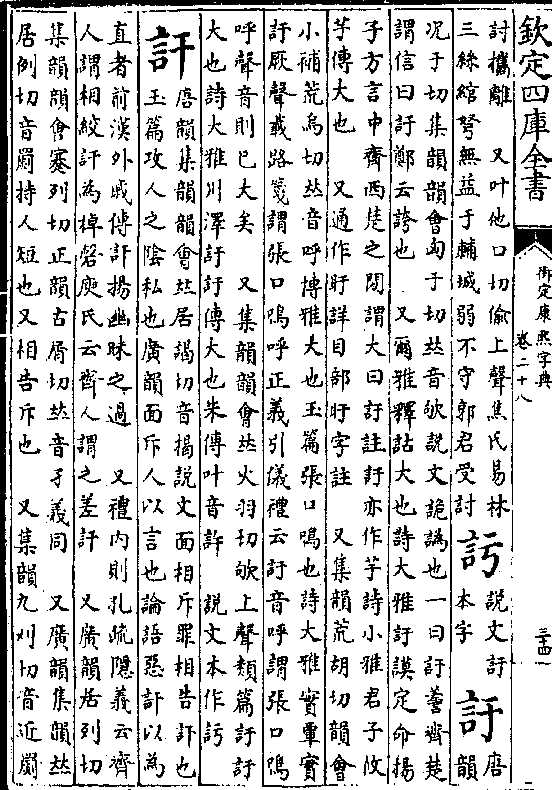 欽定四庫全書
御定康熙字典
卷二十八
討攜離　又叶他口切偷上聲焦氏易林
三絲綰弩無益于輔城弱不守郭君受討
䚽
說文訏
本字
訏
唐
韻
況于切集韻韻會匈于切𠀤音欨說文詭譌也一曰訏蒫齊楚
謂信曰訏鄭云誇也　又爾雅釋詁大也詩大雅訏謨定命揚
子方言中齊西楚之閒謂大曰訏註訏亦作芋詩小雅君子攸
芋傳大也　又通作盱詳目部盱字註　又集韻荒胡切韻會
小補荒烏切𠀤音呼博雅大也玉篇張口鳴也詩大雅實覃實
訏厥聲載路箋謂張口嗚呼正義引儀禮云訏音呼謂張口嗚
呼聲音則已大矣　又集韻韻會𠀤火羽切欨上聲類篇訏訏
大也詩大雅川澤訏訏傳大也朱傳叶音許　說文本作䚽
訐
唐韻集韻韻會𠀤居謁切音揭說文面相斥罪相告訐也
玉篇攻人之陰私也廣韻面斥人以言也論語惡訐以為
直者前漢外戚傳訐揚幽昧之過　又禮內則孔疏隱義云齊
人謂相絞訐為掉磬庾氏云齊人謂之差訐　又廣韻居列切
集韻韻會蹇列切正韻古屑切𠀤音孑義同　又廣韻集韻𠀤
居例切音罽持人短也又相告斥也　又集韻九刈切音近罽